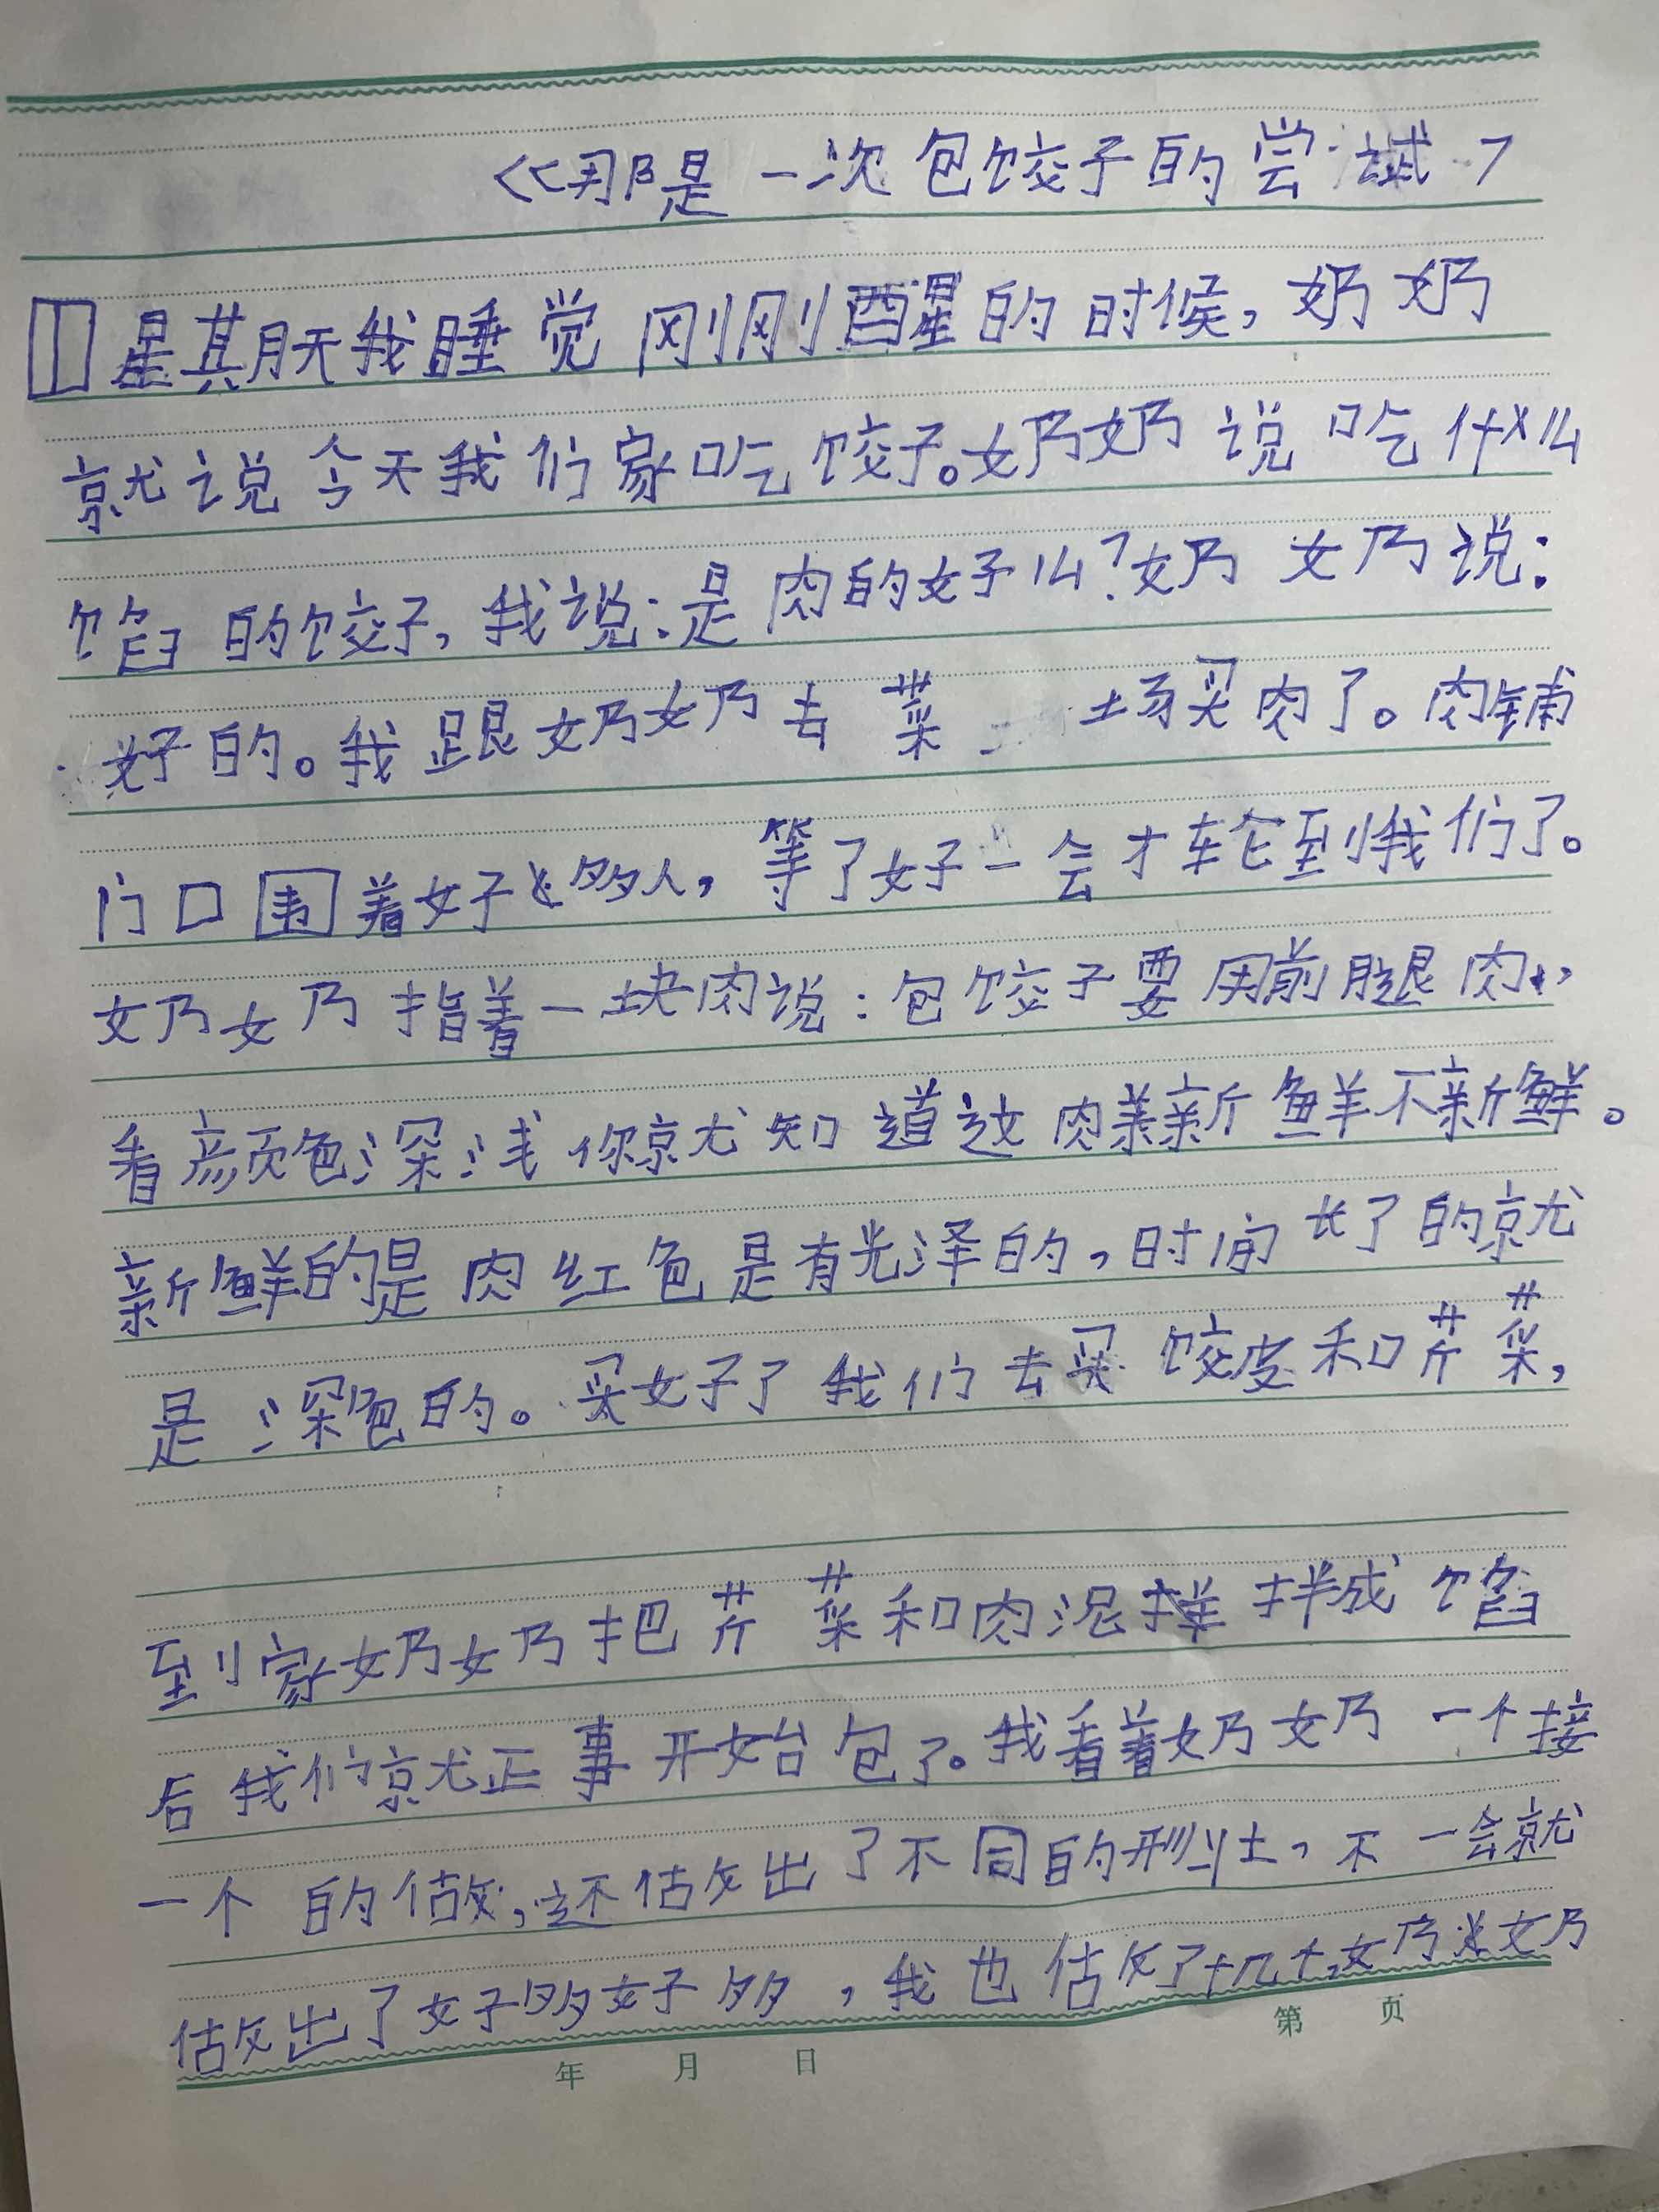 《那是一次包饺子的尝试>
星期天我睡觉刚刚醒的时候，奶奶
就说今天我们家吃饺子。奶奶说吃什么
馅的饺子，我说：是肉的好么？奶奶说：
好的。我跟奶奶去菜 场买肉了。肉铺
门口围着好多人，等了好一会才轮到我们了。
奶奶指着一块肉说：包饺子要用前腿肉，
看颜色深浅你就知道这肉新鲜不新鲜。
新鲜的是肉红色是有光泽的，时间长了的就
是深色的。买好了我们去买饺皮和芹菜，
到家奶奶把芹菜和肉泥拌成馅
后我们就正事开始包了。我看着奶奶一个接
一个的做，还做出了不同的形壮，不一会就
做出了好多好多，我也做了十几个，奶奶
年 月 日
第 页